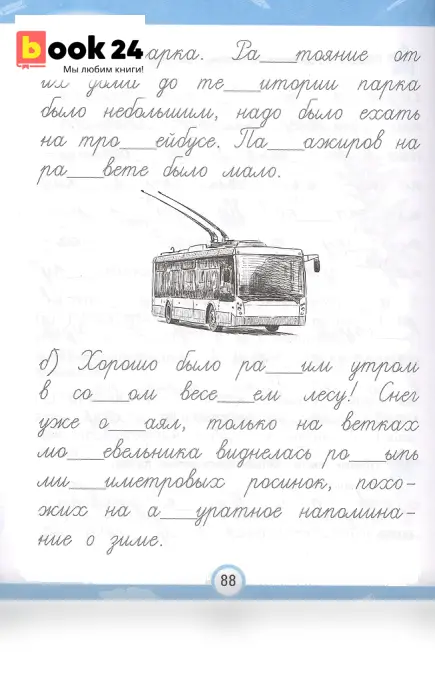 book 24
Мы любим книги!
арка. Ра___тояние от
их дома до те___итории парка
было небольшим, надо было ехать
на тро___ейбусе. Па___ажиров на
ра___вете было мало.
б) Хорошо было ра___им утром
в со___ом весе___ем лесу! Снег
уже о___аял, только на ветках
мо___евельника виднелась ро___ыпь
ми___иметровых росинок, похо-
жих на а___уратное напомина-
ние о зиме.
88